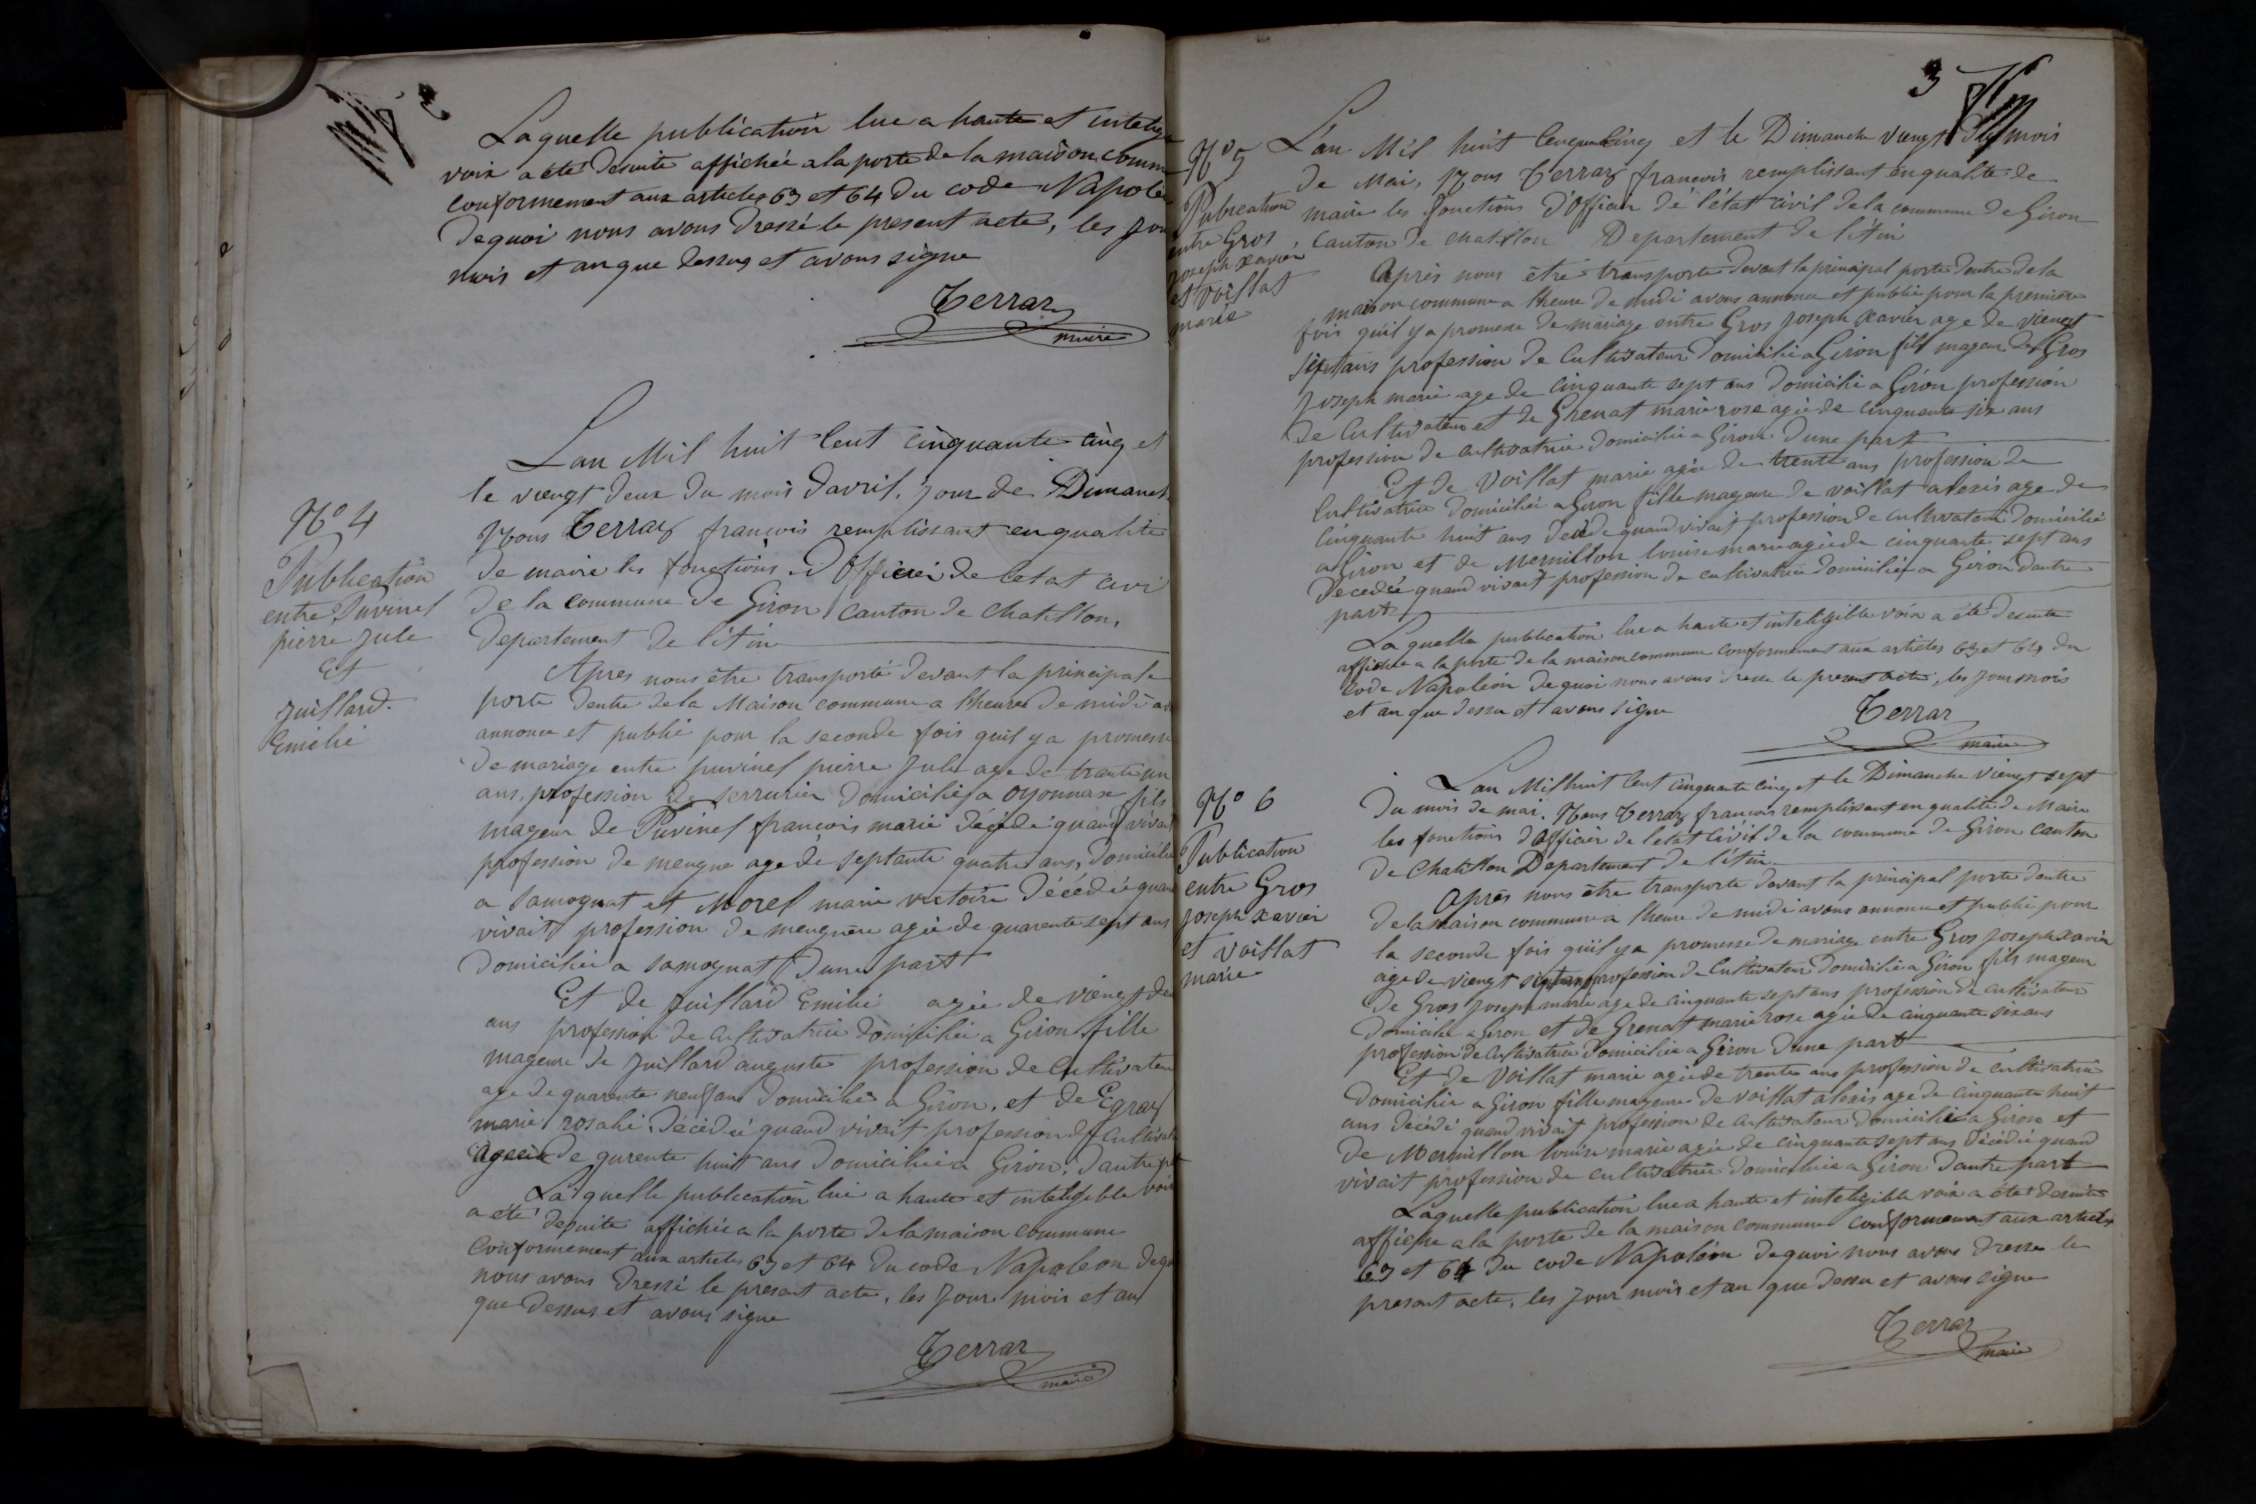 2
Laquelle publication lue a haute et intelig
voix a été desuite affichée a la porte de la maison comm
conformement aux articles 63 et 64 du code Napole
dequoi nous avons dressé le present acte, les jou
mois et an que dessus et avons signe
Terraz
maire
N° 4
Publication
entre Puvinel
pierre jule
Et
juillard
Emelie
Lan Mil huit Cent cinquante cinq et
le viengt deux du mois davril, jour de Dimanch
Nous Terraz francois remplissant enqualité
de maire les fonctions d'Officier de letat civi
de la commune de Giron Canton de Chatillon,
departement de l'Ain
Apres nous être transporté devant la principale
porte dentre dela Maison commune a lheure de midi a
annonce et publié pour la seconde fois quil y a promesse
de mariage entre puvinel pierre jule age de trante un
ans, profession de serrurier domicilié a oyonnax fils
mageur de Puvinel francois marie décédé quand vivait
profession de meugne age de septante quatre ans, domicilie
a Samognat et Morel marie victoire décédée quan
vivait profession de meugnere agée de quarente sept ans
domiciliée a samognat d'une part
Et de juillard Emilie agée de viengt de
ans profession de cultivatrice domiciliée a Giron fille
mageure de juillard auguste profession de Cultivateu
age de quarente neuf ans domicilié a Giron, et de Egraz
marie rosalie décédée quand vivait profession de Cultivat
Ageeé de qurente huit ans domiciliée a Giron, dautre pt
Laquelle publication lue a haute et inteligible voix
a été desuite affichée a la porte de la maison commune
Conformement aux articles 63 et 64 du code Napoleon dequ
nous avons dressé le present acte, les jour mois et an
que dessus et avons signe
Terraz
maire
3
N° 5
Publication
entre Gros
joseph xavier
et Voillat
marie
L'an Mil huit Cenquecinq et le Dimanche viengt du mois
de Mai, Nous Terraz francois remplissant enqualité de
maire les fonctions d'Officier de l'état civil dela commune de Giron
Canton de chatillon Departement de l'Ain
Après nous être transporte devant la principal porte dentre dela
maison commune a lheure de midi avons annonce et publié pour la premiere
fois quil y a promesse de mariage entre Gros joseph xavier age de viengt
sept ans profession de Cultivateur domicilié a Giron fils mageur de Gros
joseph marie age de cinquante sept ans domicilié a Giron profession
de Cultivateur et de Grenat marie rose agée de cinquante six ans
profession de cultivatrice domiciliée a Giron d'une part
Et de Voillat marie agée de trente ans profession de
Cultivatrice domiciliée a Giron fille mageure de voillat alexis age de
Cinquante huit ans decédé quand vivait profession de cultivateur domicilié
a Giron et de Mermillon louise marie agée de cinquante sept ans
décedée quand vivait profession de cultivatrice domiciliée a Giron dautre
part
Laquelle publication lue a haute et inteligible voix a été desuite
affichee a la porte de la maison commune conformement aux articles 63 et 64 du
code Napoléon dequoi nous avons dresse le present acte, les jour mois
et an que dessu et avons signe
Terraz
maire
N° 6
Publication
entre Gros
joseph xavier
et Voillat
marie
L'an Mil huit Cent cinquante cinq et le Dimanche viengt sept
du mois de mai, Nous Terraz francois remplissant en qualité de Maire
les fonctions d'Officier de letat Civil de la commune de Giron Canton
de Chatillon Departement de l'Ain
Après nous être transporte devant la principal porte dentre
de la maison commune a lheure de midi avons annonce et publié pour
la seconde fois quil y a promesse de mariage entre Gros joseph xavier
age de viengt sept ans profession de Cultivateur domicilié a Giron fils mageur
de Gros joseph marie age de cinquante sept ans profession de cultivateur
domicilié a Giron et de Grenat marie rose agée de cinquante six ans
profession de Cultivatrice domiciliée a Giron d'une part
Et de Voillat marie agée de trente ans profession de cultivatrice
domiciliée a Giron fille mageure de voillat alexis age de cinquante huit
ans décédé quand vivait profession de cultivateur domicilié a Giron et
de Mermillon louise marie agée de cinquante sept ans décédée quand
vivait profession de cultivatrice domiciliée a Giron dautre part
Laquelle publication lue a haute et inteligible voix a été desuite
affiche a la porte de la maison commune conformement aux articles
63 et 64 du code Napoléon dequoi nous avons dresse le
present acte, les jour mois et an que dessu et avons signe
Terraz
maire